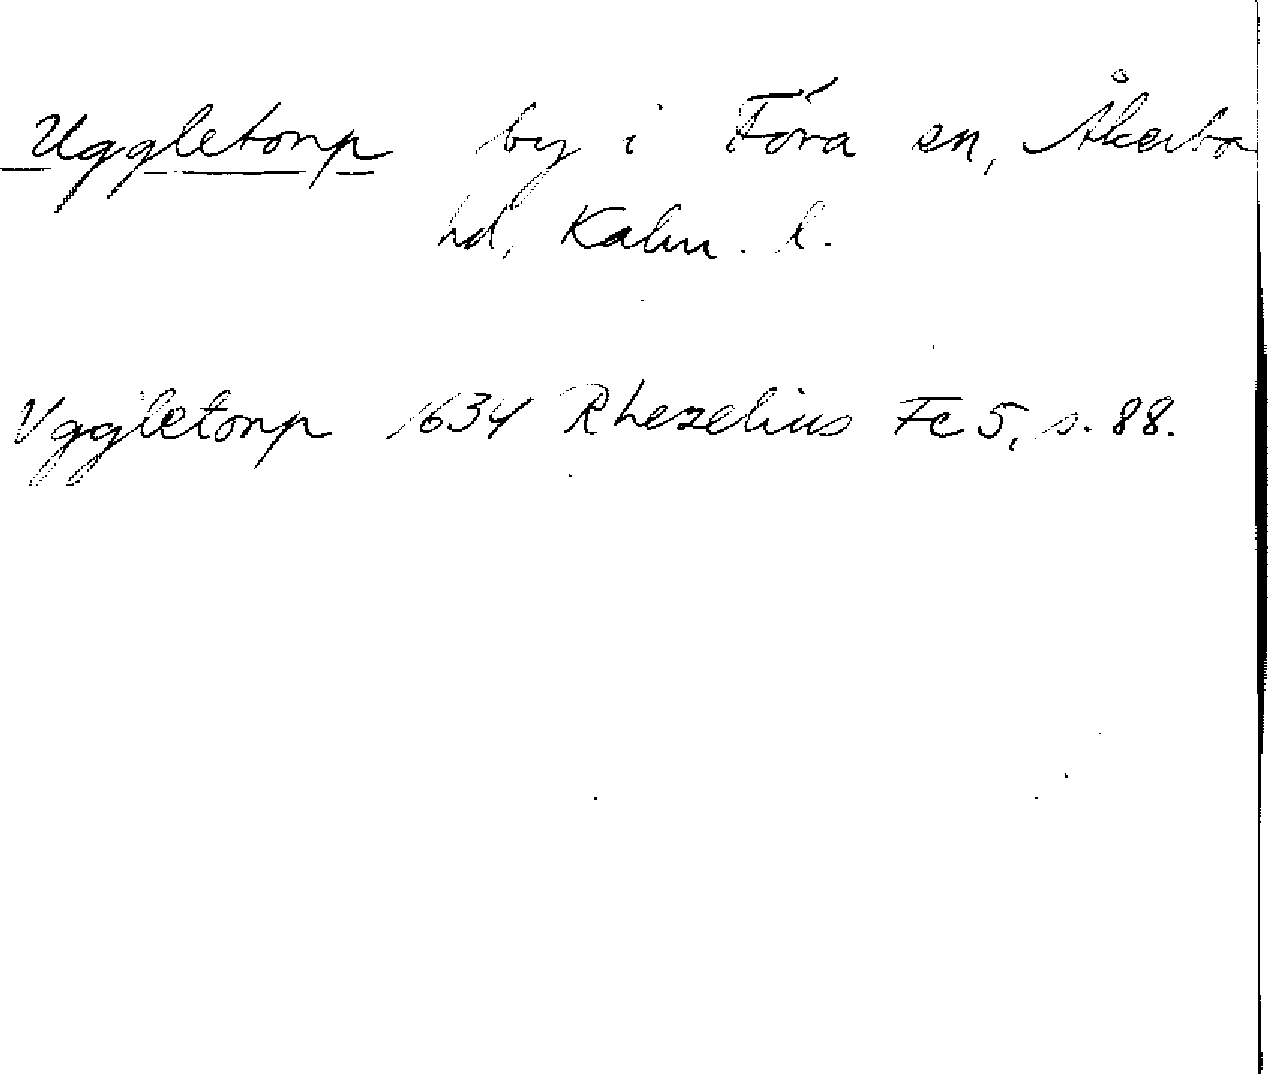 Uggletorp by i Föra sn, Åkerbo
hd, Kalm. l.
Vggletorp 1634 Rhezelius Fc 5, s. 88.